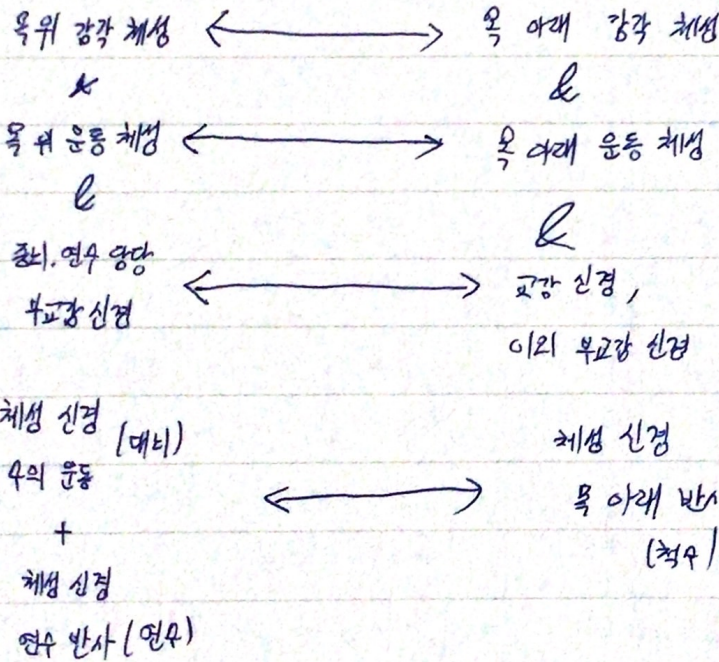 목위 감각 체성 ↔ 목 아래 감각 체성
& &
목 위 운동 체성 ↔ 목 아래 운동 체성
& &
중뇌, 연수 담당
부교감 신경 ↔ 교감 신경,
이외 부교감 신경
체성 신경 (대뇌)
수의 운동 ↔ 체성 신경
목 아래 반사
(척수)
+
체성 신경
연수 반사 (연수)